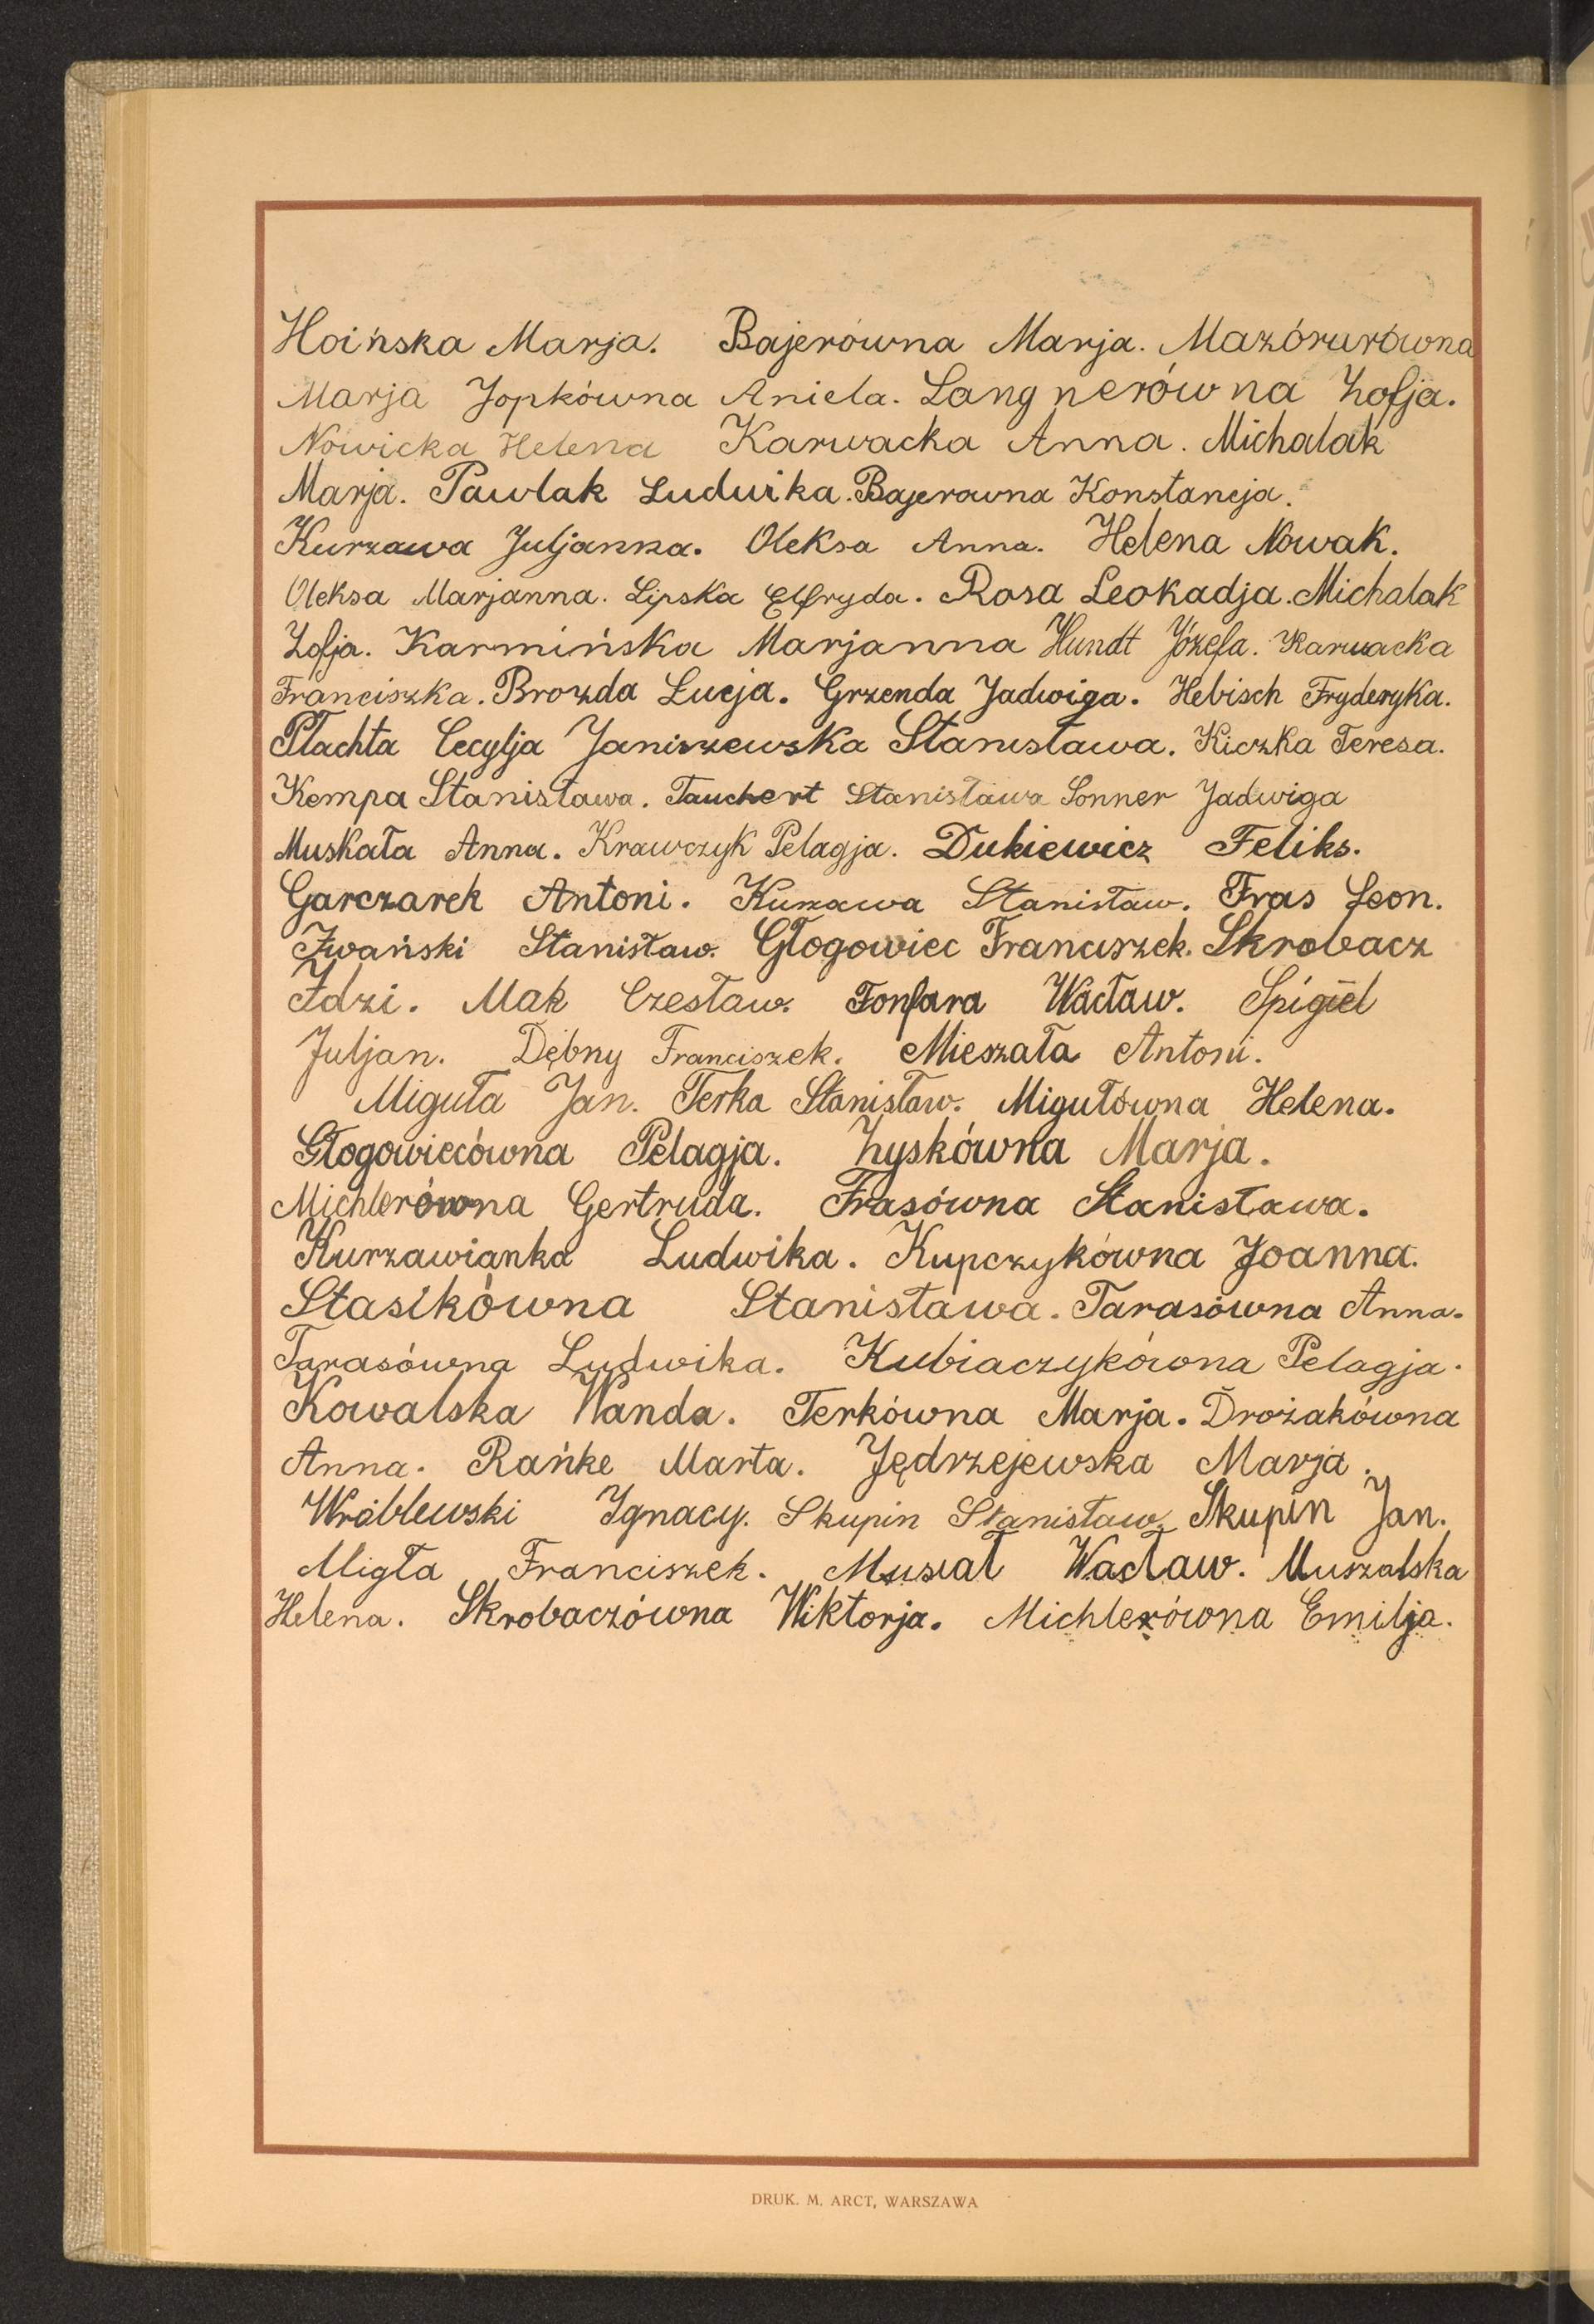 Hoińska Marja. Bajerówna Marja. Mazórurówna
Marja Jopkówna Aniela. Langnerówna Zofja.
Nówicka Helena Karwacka Anna. Michalak
Marja. Pawlak Ludwika. Bajerowna Konstancja.
Kurzawa Juljanna. Oleksa Anna. Helena Nowak.
Oleksa Marjanna. Lipska Elfryda. Rosa Leokadja. Michalak
Zofja. Karmińska Marjanna Hundt Józefa. Karwacka
Franciszka. Brozda Łucja. Grzenda Jadwiga. Hebisch Fryderyka.
Płachta Cecylja Janiszewska Stanisława. Kiczka Teresa.
Kempa Stanisława. Tauchert Stanisława Sonner Jadwiga
Muskała Anna. Krawczyk Pelagja. Dukiewicz Feliks.
Garczarek Antoni. Kurzawa Stanisław. Fras Leon.
Iwański Stanisław. Głogowiec Franciszek. Skrobacz
Idzi. Mak Czesław. Fonfara Wacław. Spigiel
Juljan. Dębny Franciszek. Mieszała Antoni.
Miguła Jan. Terka Stanisław. Migułówna Helena.
Głogowiecówna Pelagja. Zyskówna Marja.
Michlerówna Gertruda. Frasówna Stanisława.
Kurzawianka Ludwika. Kupczykówna Joanna.
Stasikówna Stanisława. Tarasówna Anna.
Tarasówna Ludwika. Kubiaczykówna Pelagja.
Kowalska Wanda. Terkówna Marja. Drożakówna
Anna. Rańke Marta. Jędrzejewska Marja.
Wróblewski Ignacy. Skupin Stanisław. Skupin Jan.
Migła Franciszek. Musiał Wacław. Muszalska
Helena. Skrobaczówna Wiktorja. Michlerówna Emilja.
DRUK. M. ARCT, WARSZAWA